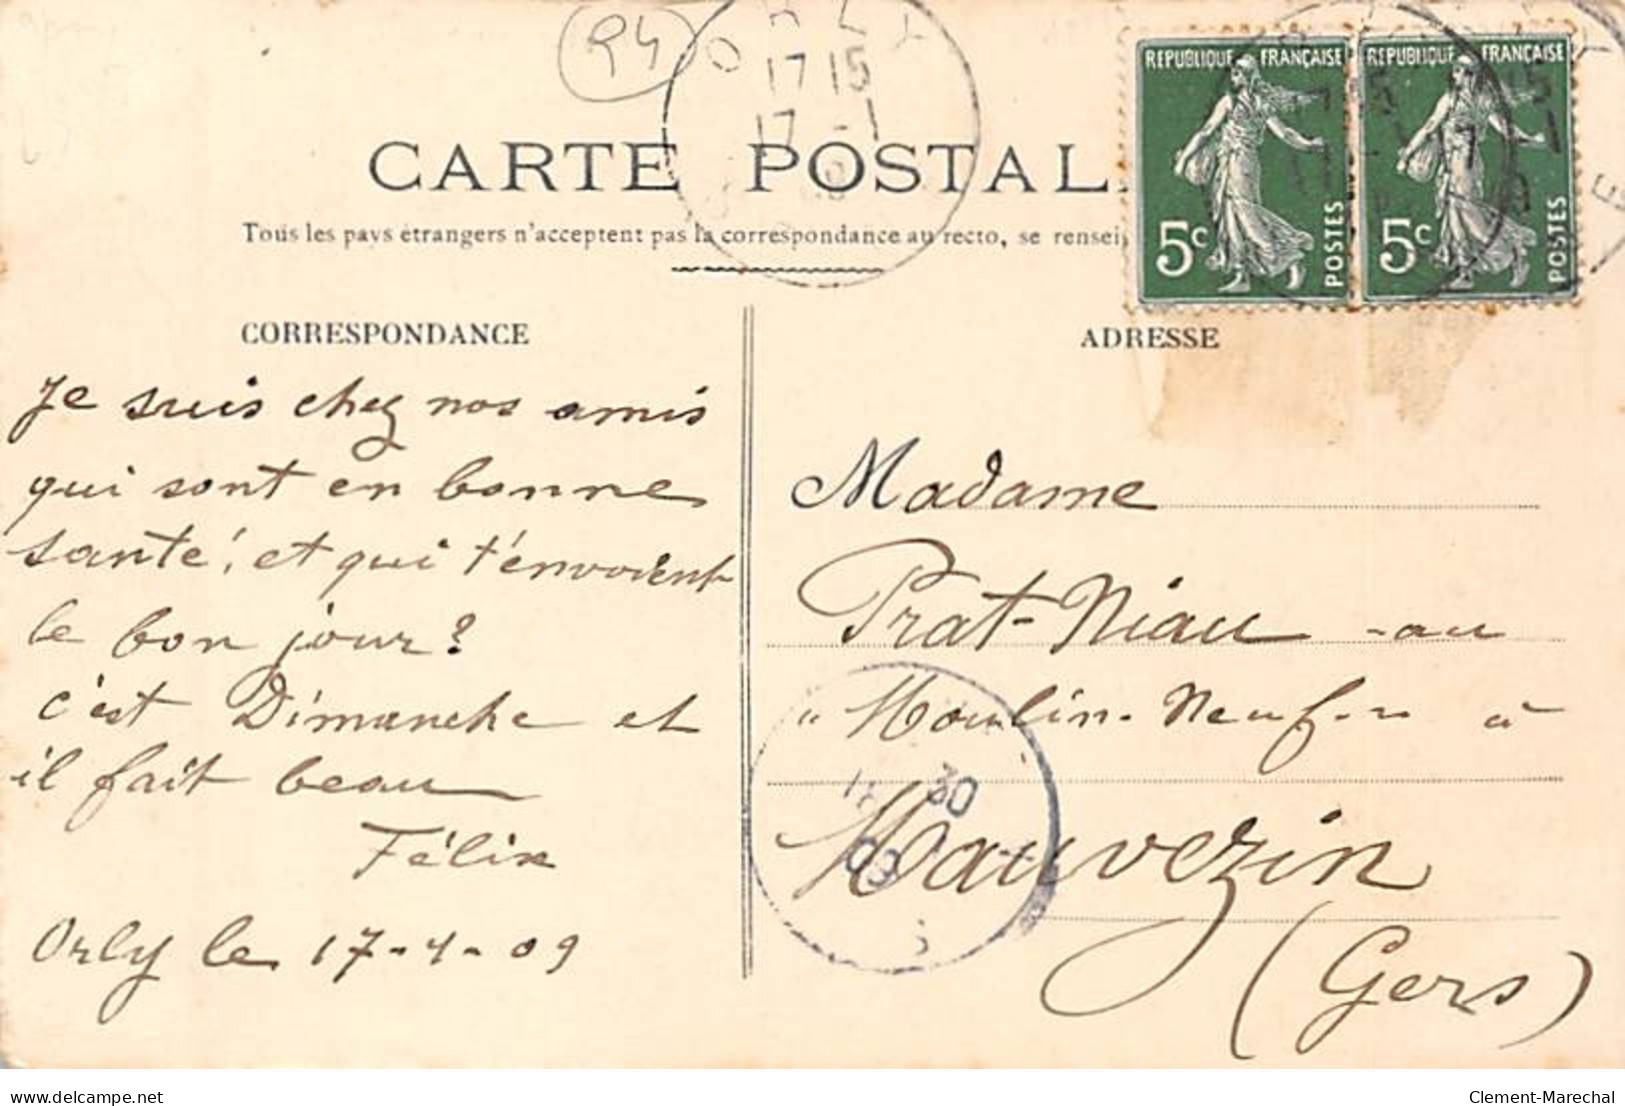 94
ORLY
17 15
17 -1
CARTE POSTAL
Tous les pays étrangers n'acceptent pas la correspondance au recto, se rensei
REPUBLIQUE FRANÇAISE
5c
POSTES
REPUBLIQUE FRANÇAISE
5c
POSTES
CORRESPONDANCE
Je suis chez nos amis
qui sont en bonne
santé, et qui t'envoient
le bon jour?
c'est Dimanche et
il fait beau
Félix
Orly le 17-1-09
ADRESSE
Madame
Prat-Niau - au
"Moulin-Neuf-" à
Mauvezin
(Gers)
30
09
delcampe.net
Clement-Marechal